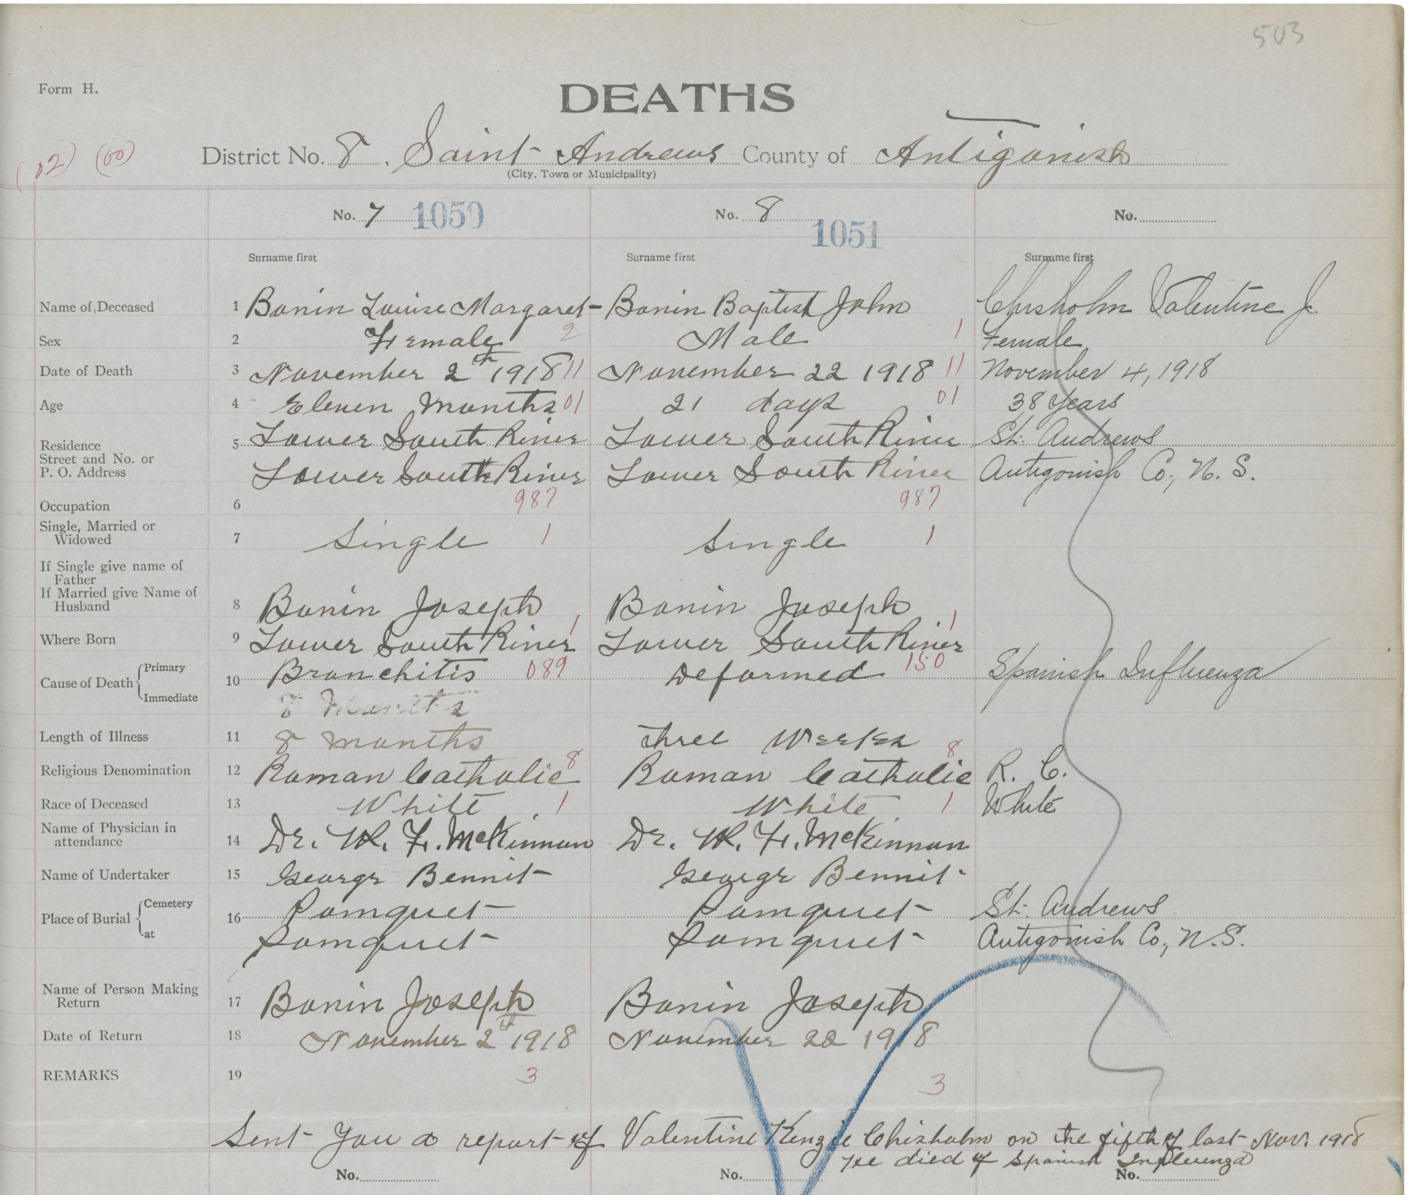 503
Form H.
DEATHS
(02) (00) District No. 8. Saint Andrews County of Antigonish
(City, Town or Municipality)
No. 7 1050 No. 8 1051 No.
Surname first Surname first Surname first
Name of Deceased 1 Bonin Louise Margaret Bonin Baptist John Chisholm Valentine J.
Sex 2 Female 2 Male 1 Female
Date of Death 3 November 2th 1918 11 November 22 1918 11 November 4, 1918
Age 4 Eleven Months 01 21 days 01 38 Years
Residence 5 Lower South River Lower South River St. Andrews
Street and No. or
P. O. Address Lower South River Lower South River Antigonish Co, N. S.
Occupation 6 987 987
Single, Married or
Widowed 7 Single 1 Single 1
If Single give name of
Father
If Married give Name of
Husband 8 Bonin Joseph Bonin Joseph
Where Born 9 Lower South River 1 Lower South River 1
Cause of Death Primary 10 Bronchitis 089 Deformed 150 Spanish Influenza
Immediate 8 Months
Length of Illness 11 8 months three Weeks
Religious Denomination 12 Roman Catholic 8 Roman Catholic 8 R. C.
Race of Deceased 13 White 1 White 1 White
Name of Physician in
attendance 14 Dr. W. F. McKinnon Dr. W. F. McKinnon
Name of Undertaker 15 George Bennit George Bennit
Place of Burial Cemetery 16 Pomquet Pomquet St. Andrews
at Pomquet Pomquet Antigonish Co, N.S.
Name of Person Making
Return 17 Bonin Joseph Bonin Joseph
Date of Return 18 November 2th 1918 November 22 1918
REMARKS 19 3 3
Sent You a report of Valentine Kenzie Chisholm on the fifth of last Nov. 1918
He died of Spanish Influenza
No. No. No.